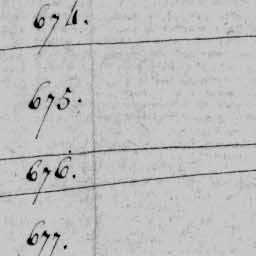 674.
675.
676.
677.